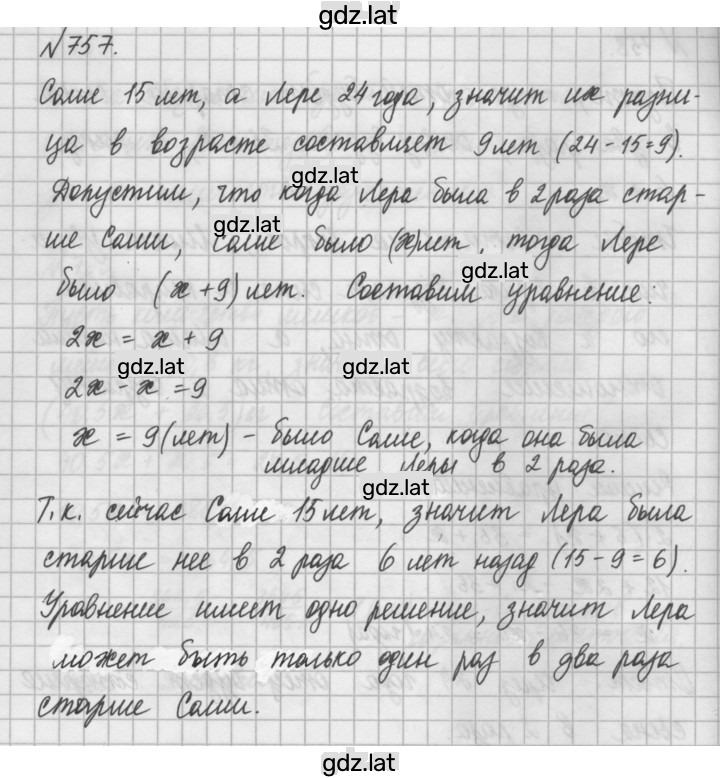 gdz.lat
№757.
Соше 15 лет, а Лере 24 года, значит их разни-
ца в возрасте составляет 9 лет (24 - 15 = 9).
gdz.lat
Допустим, что когда Лера была в 2 раза стар-
gdz.lat
ше Соши, Соше было (x) лет, тогда Лере
gdz.lat
было (x + 9) лет. Составим уравнение:
2x = x + 9
gdz.lat gdz.lat
2x - x = 9
x = 9 (лет) - было Соше, когда она была
младше Леры в 2 раза.
gdz.lat
Т.к. сейчас Соше 15 лет, значит Лера была
старше нее в 2 раза 6 лет назад (15 - 9 = 6).
Уравнение имеет одно решение, значит Лера
может быть только один раз в два раза
старше Соши.
gdz.lat